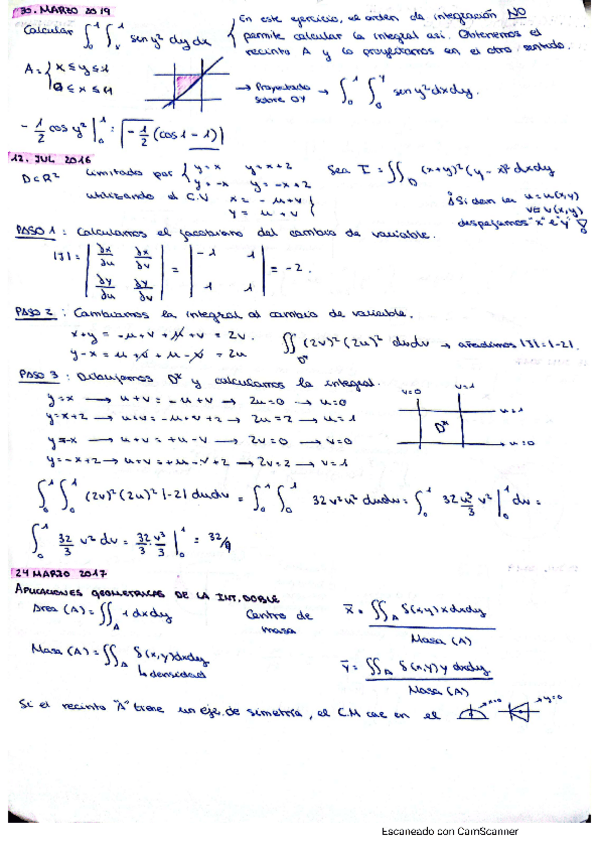 30. MARZO 2019
Calcular ∫₀¹ ∫ₓ¹ sen y² dy dx { En este ejercicio, el orden de integración NO
permite calcular la integral así. Obtenemos el
recinto A y lo proyectamos en el otro sentido.
A = { x ≤ y ≤ 1
0 ≤ x ≤ 1
→ Proyectado sobre OY → ∫₀¹ ∫₀ʸ sen y² dx dy.
- 1/2 cos y² |₀¹ = - 1/2 (cos 1 - 1)
12. JUL 2016
D⊂R² limitado por { y=x y=x+2 Sea I = ∫∫_D (x+y)² (y-x)² dxdy
y=-x y=-x+2
utilizando el C.V x = -u+v
y = u+v }
¡Si dan u=u(x,y)
v=v(x,y)
despejamos "x" e "y"!
PASO 1: Calculamos el jacobiano del cambio de variable.
|J| = | ∂x/∂u ∂x/∂v | = | -1 1 | = -2.
| ∂y/∂u ∂y/∂v | | 1 1 |
PASO 2: Cambiamos la integral al cambio de variable.
x+y = -u+v+u+v = 2v.
y-x = u+v+u-v = 2u
∫∫_D* (2v)² (2u)² dudv → añadimos |J|=|-2|
PASO 3: Dibujamos D* y calculamos la integral.
y=x → u+v = -u+v → 2u=0 → u=0
y=x+2 → u+v = -u+v+2 → 2u=2 → u=1
y=-x → u+v = +u-v → 2v=0 → v=0
y=-x+2 → u+v = +u-v+2 → 2v=2 → v=1
v=0 v=1
u=1
D*
u=0
∫₀¹ ∫₀¹ (2v)² (2u)² |-2| dudv = ∫₀¹ ∫₀¹ 32v²u² dudv = ∫₀¹ 32 u³/3 v² |₀¹ dv =
∫₀¹ 32/3 v² dv = 32/3 v³/3 |₀¹ = 32/9
24 MARZO 2017
APLICACIONES GEOMETRICAS DE LA INT. DOBLE
Area (A) = ∫∫_A 1 dxdy
Centro de masa
x̄ = ∫∫_A δ(x,y) x dxdy / Masa (A)
Masa (A) = ∫∫_A δ(x,y) dxdy
↳ densidad
ȳ = ∫∫_A δ(x,y) y dxdy / Masa (A)
Si el recinto "A" tiene un eje de simetría, el C.M cae en el
x=0
y=0
Escaneado con CamScanner